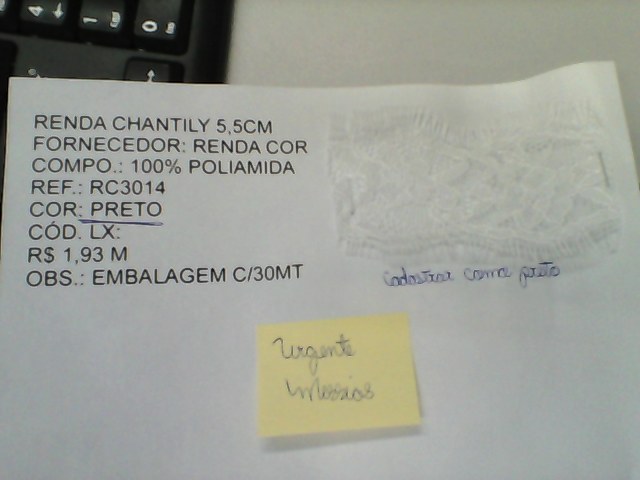 RENDA CHANTILY 5,5CM
FORNECEDOR: RENDA COR
COMPO.: 100% POLIAMIDA
REF.: RC3014
COR: PRETO
CÓD. LX:
R$ 1,93 M
OBS.: EMBALAGEM C/30MT
cadastrar como preto
Urgente
Messias